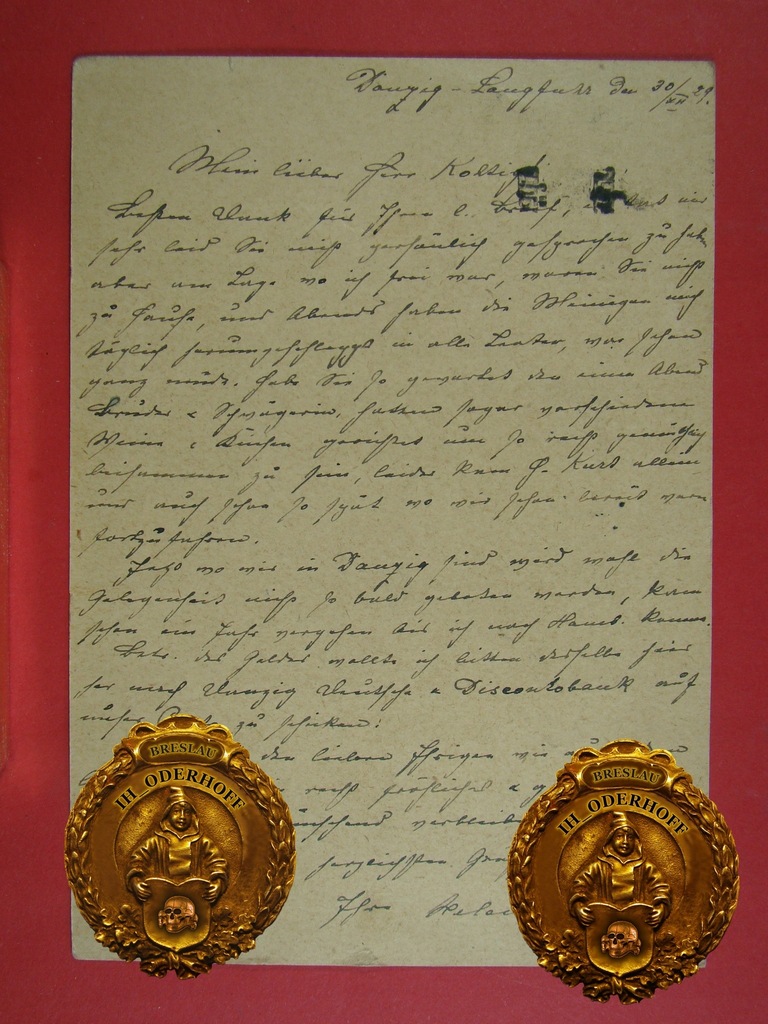 Danzig - Langfuhr den 30/XII 29.
Mein lieber Herr Koltzig!
Besten Dank für Ihren l. Brief, tut mir
sehr leid Sie nicht persönlich gesprochen zu haben
aber am Tage wo ich frei war, waren Sie nicht
zu Hause, und Abends haben die Meinigen mich
täglich herumgeschleppt in alle Teater, war schon
ganz müde. Habe Sie so gewartet den einen Abend
Bruder & Schwägerin, hatten sogar verschiedene
Weine & Kuchen gerichtet um so recht gemütlich
beisammen zu sein, leider kam H. Kurt allein
und auch schon so spät wo wir schon bereit waren
fortzufahren.
Jetzt wo wir in Danzig sind wird wohl die
Gelegenheit nicht so bald geboten werden, kann
schon ein Jahr vergehen bis ich nach Hamb. komme.
Betr. des Geldes wollte ich bitten dasselbe hier
her nach Danzig Deutsche & Discontobank auf
unser zu schicken.
den lieben Ihrigen wie
recht fröhliches &
verbleibe
herzlichsten
Ihre
BRESLAU
IH ODERHOFF
BRESLAU
IH ODERHOFF